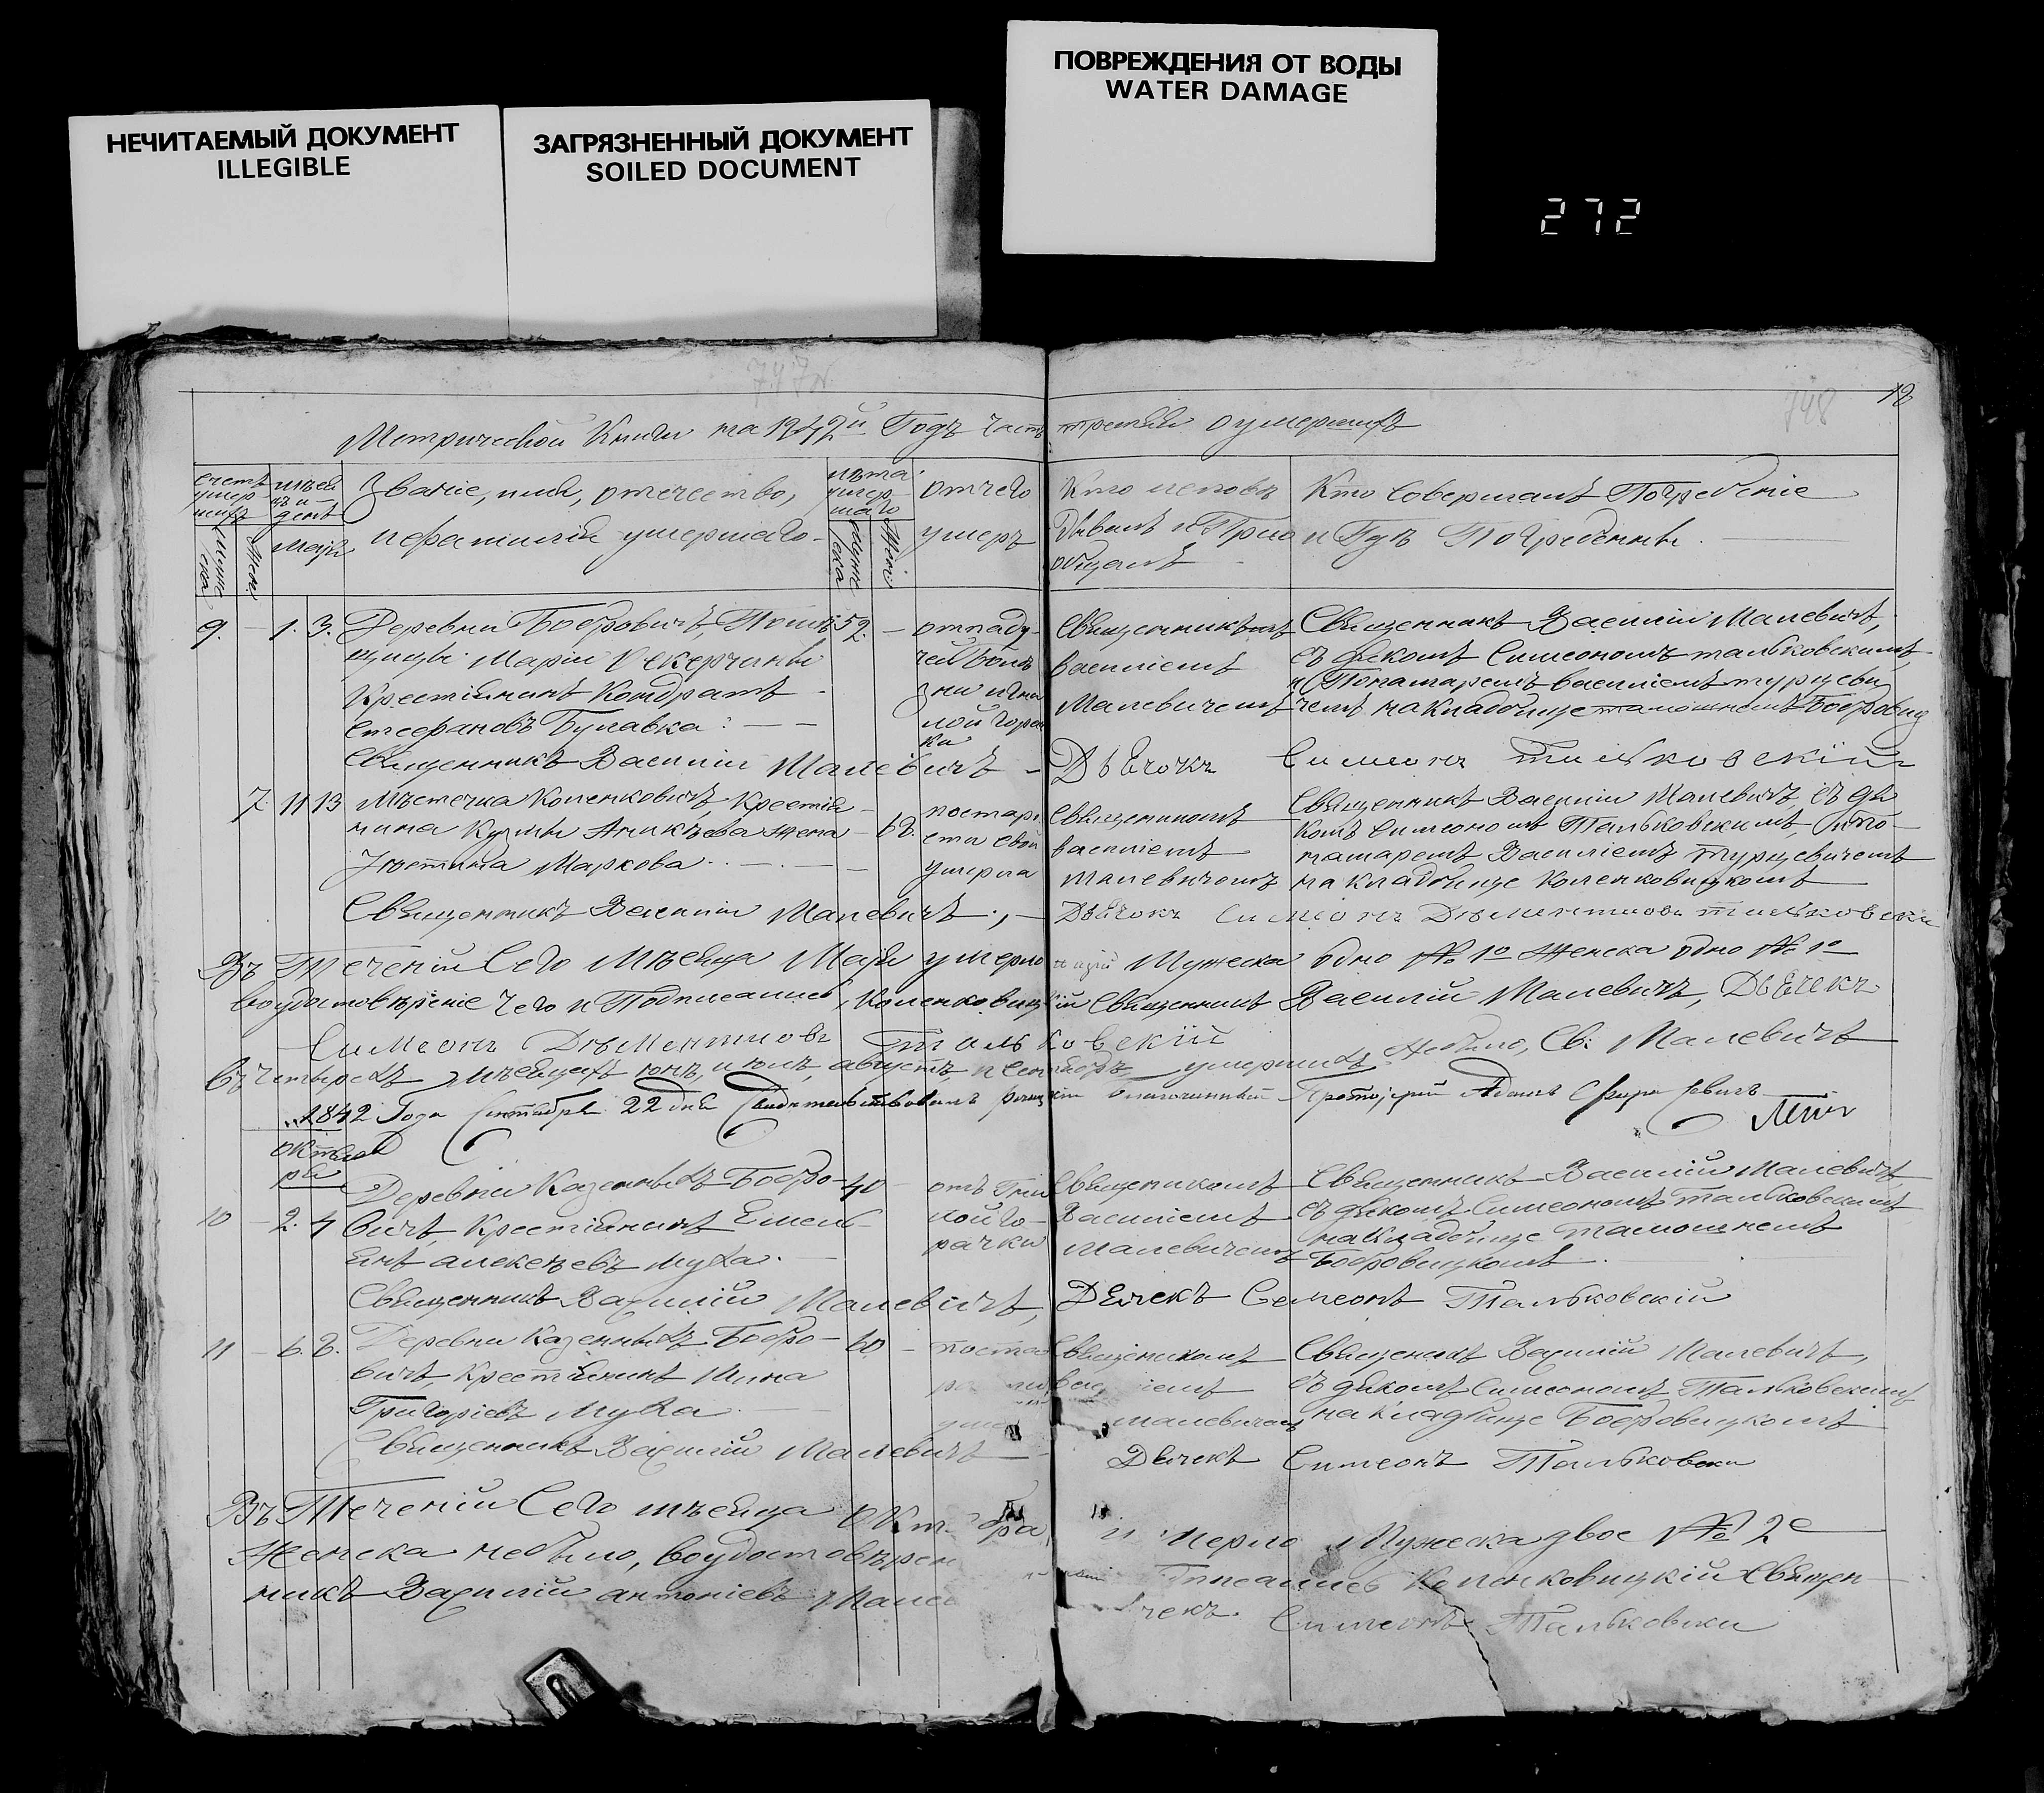 НЕЧИТАЕМЫЙ ДОКУМЕНТ
ILLEGIBLE
ЗАГРЯЗНЕННЫЙ ДОКУМЕНТ
SOILED DOCUMENT
ПОВРЕЖДЕНИЯ ОТ ВОДЫ
WATER DAMAGE
272
747
748
18
Метрической Книги на 1842й Годъ часть третья о умершихъ
счетъ умершихъ
мѣсяцъ и день
Звание, имя, отечество,
и фамилия умершаго
лѣта умершаго
отчего
умеръ
Кто исповѣдывалъ и Приобщалъ
Кто Совершалъ Погребение
и Гдѣ Погребенны
Мужеска
Женс
Майя
9. 1. 3. Деревни Бобровичъ, Помѣ 52.
щицы Марии
Крестьянинъ Кондратъ
Стефановъ Булавка
от паду
чей болѣ
зни и гни
лой горя
ки
Священникомъ
Василіемъ
Малевичемъ
Священникъ Василий Малевичъ,
съ дякомъ Симеономъ Тальковскимъ,
и Понамаремъ Василіемъ Турцеви
чемъ на кладбище тамошнемъ Бобровиц
Священникъ Василий Малевичъ
Дьячокъ Симеонъ Тальковскій
7. 11 13 Мѣстечка Копенковичъ, Крестья
нина Кузьмы Аникѣева жена 62.
Устина Маркова
по старо
сти своей
умерла
Священникомъ
Василіемъ
Малевичомъ
Священникъ Василий Малевичъ, съ дя
комъ Симеономъ Тальковскимъ, и по
намаремъ Василіемъ Турцевичемъ
на кладбище Копенковицкомъ
Священникъ Василий Малевичъ
Дьячокъ Симеонъ Дѣментиовъ Тальковски
Въ Течении Сего Мѣсяца Майя умерло Мужеска одно № 1о Женска одно № 1о
во удостовѣрение чего и Подписались, Копенковицкій Священникъ Василий Малевичъ, Дьячекъ
Симеонъ Дѣментиовъ Тальковскій
Въ четырехъ мѣсяцахъ юнѣ, июлѣ, августѣ, и сентябрѣ умершихъ Небыло, Св: Малевичъ
1842 Года Сентября 22 дня Свидетельствовалъ благочинный Протоіерей Адамъ
октяб
ря
10 2. 4 Деревни Казенныхъ Бобро 40
вичъ, Крестьянинъ Емель
янъ Алексѣевъ Муха.
отъ Гни
лой го
рячки
Священикомъ
Василіемъ
Малевичемъ
Священникъ Василий Малевичъ
съ дякомъ Симеономъ Тальковскимъ
на кладбище тамошнемъ
Бобровицкомъ
Священникъ Василий Малевичъ,
Дьячекъ Семеонъ Тальковский
11 6. 8. Деревни Казенныхъ Бобро 60
вичъ, Крестьянинъ Мина
Григориевъ Муха
по ста
Священикомъ
Малевичемъ
Священикъ Василий Малевичъ,
съ дякомъ Симеономъ Тальковскимъ
на кладбище Бобровицкомъ
Священникъ Василий Малевичъ
Дьячекъ Симеонъ Тальковски
Въ Течении Сего мѣсяца Мужеска двое № 2е
Женска небыло, Копенковицкій Священ
никъ Василий Антоніевъ
Симеонъ Тальковски